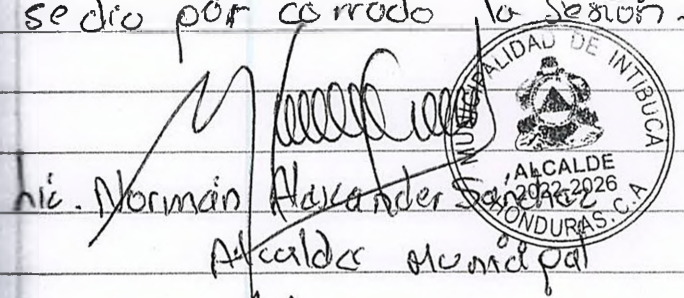 se dio por cerrado la sesión.
MUNICIPALIDAD DE INTIBUCA
ALCALDE
2022-2026
HONDURAS. C.A
Lic. Norman Alexander Sánchez
Alcalde Municipal